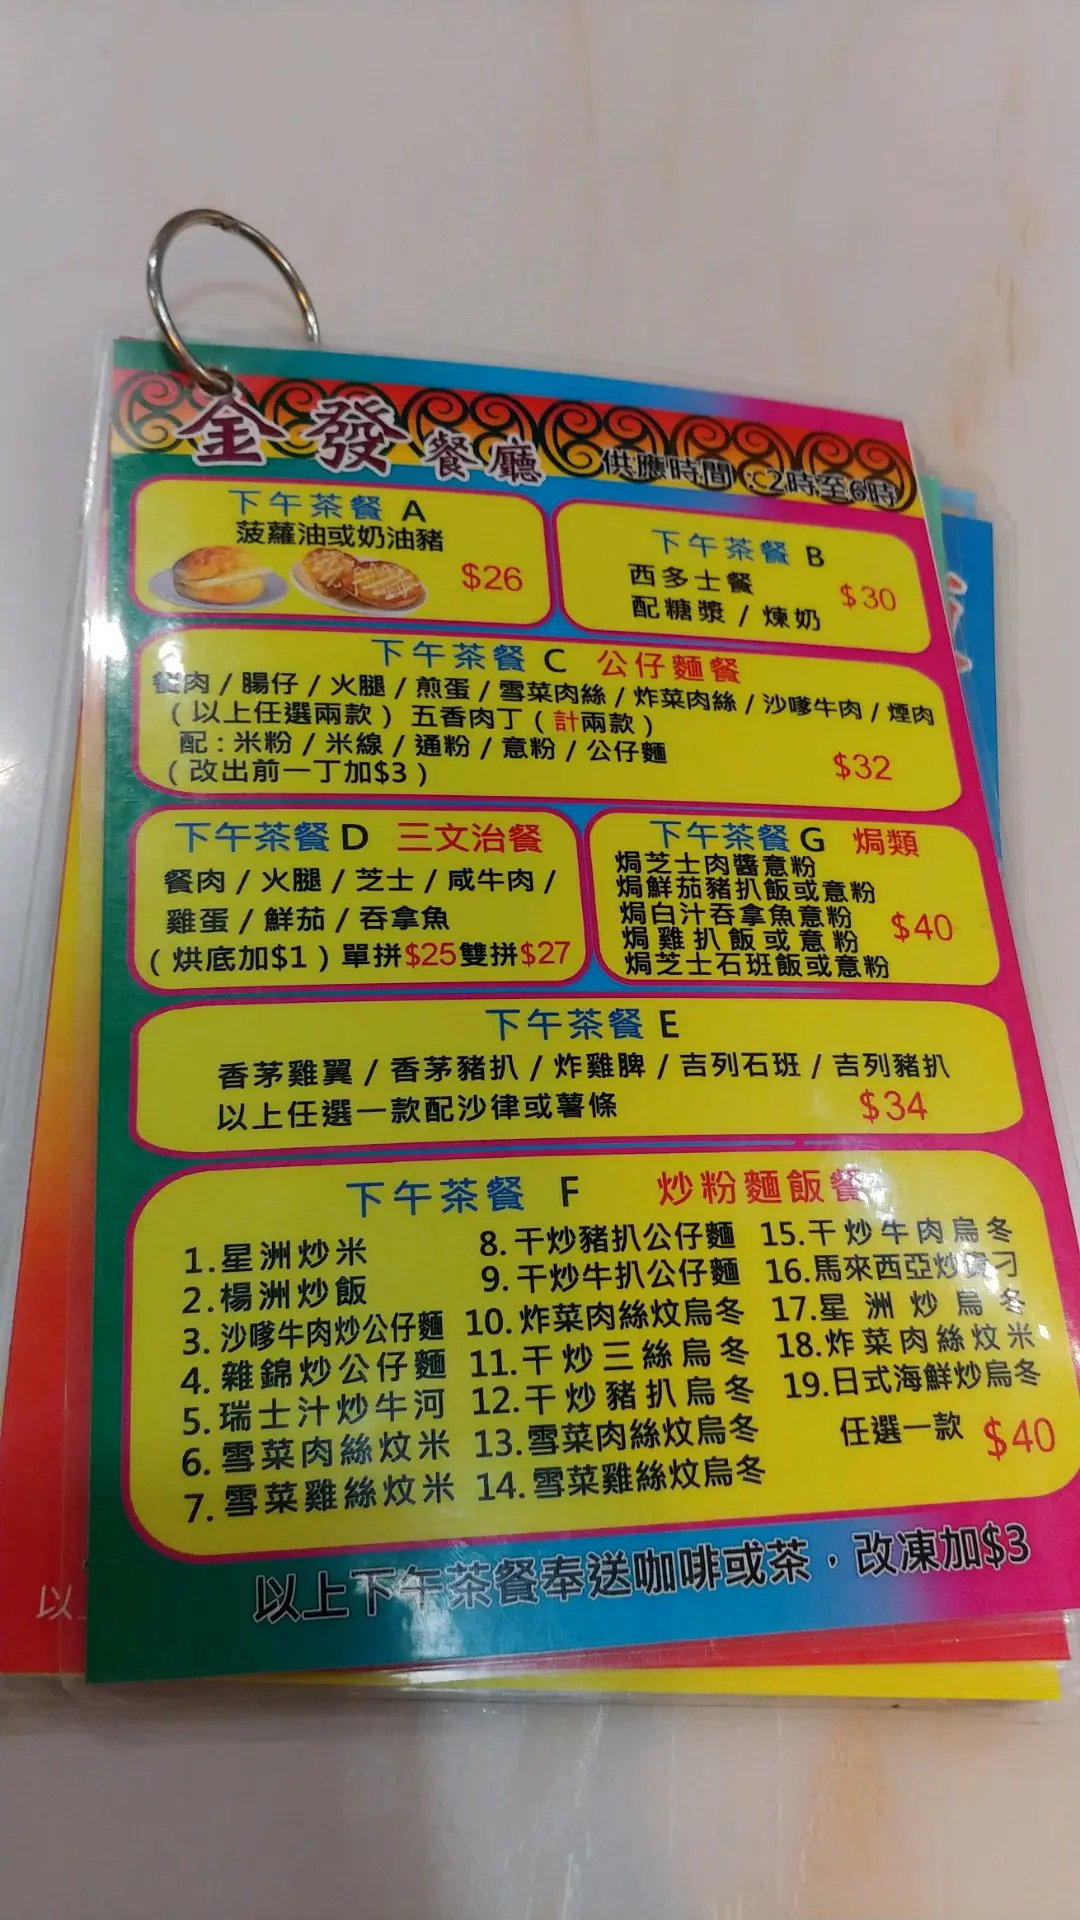 金發餐廳 供應時間：2時至6時
下午茶餐 A
菠蘿油或奶油豬
$26
下午茶餐 B
西多士餐
配糖漿 / 煉奶
$30
下午茶餐 C 公仔麵餐
餐肉 / 腸仔 / 火腿 / 煎蛋 / 雪菜肉絲 / 炸菜肉絲 / 沙嗲牛肉 / 煙肉
（以上任選兩款） 五香肉丁（計兩款）
配：米粉 / 米線 / 通粉 / 意粉 / 公仔麵
（改出前一丁加$3）
$32
下午茶餐 D 三文治餐
餐肉 / 火腿 / 芝士 / 咸牛肉 /
雞蛋 / 鮮茄 / 吞拿魚
（烘底加$1）單拼$25雙拼$27
下午茶餐 G 焗類
焗芝士肉醬意粉
焗鮮茄豬扒飯或意粉
焗白汁吞拿魚意粉
焗雞扒飯或意粉
焗芝士石班飯或意粉
$40
下午茶餐 E
香茅雞翼 / 香茅豬扒 / 炸雞脾 / 吉列石班 / 吉列豬扒
以上任選一款配沙律或薯條
$34
下午茶餐 F 炒粉麵飯餐
1.星洲炒米
2.楊洲炒飯
3.沙嗲牛肉炒公仔麵
4.雜錦炒公仔麵
5.瑞士汁炒牛河
6.雪菜肉絲炆米
7.雪菜雞絲炆米
8.干炒豬扒公仔麵
9.干炒牛扒公仔麵
10.炸菜肉絲炆烏冬
11.干炒三絲烏冬
12.干炒豬扒烏冬
13.雪菜肉絲炆烏冬
14.雪菜雞絲炆烏冬
15.干炒牛肉烏冬
16.馬來西亞炒貴刁
17.星洲炒烏冬
18.炸菜肉絲炆米
19.日式海鮮炒烏冬
任選一款 $40
以上下午茶餐奉送咖啡或茶，改凍加$3
以